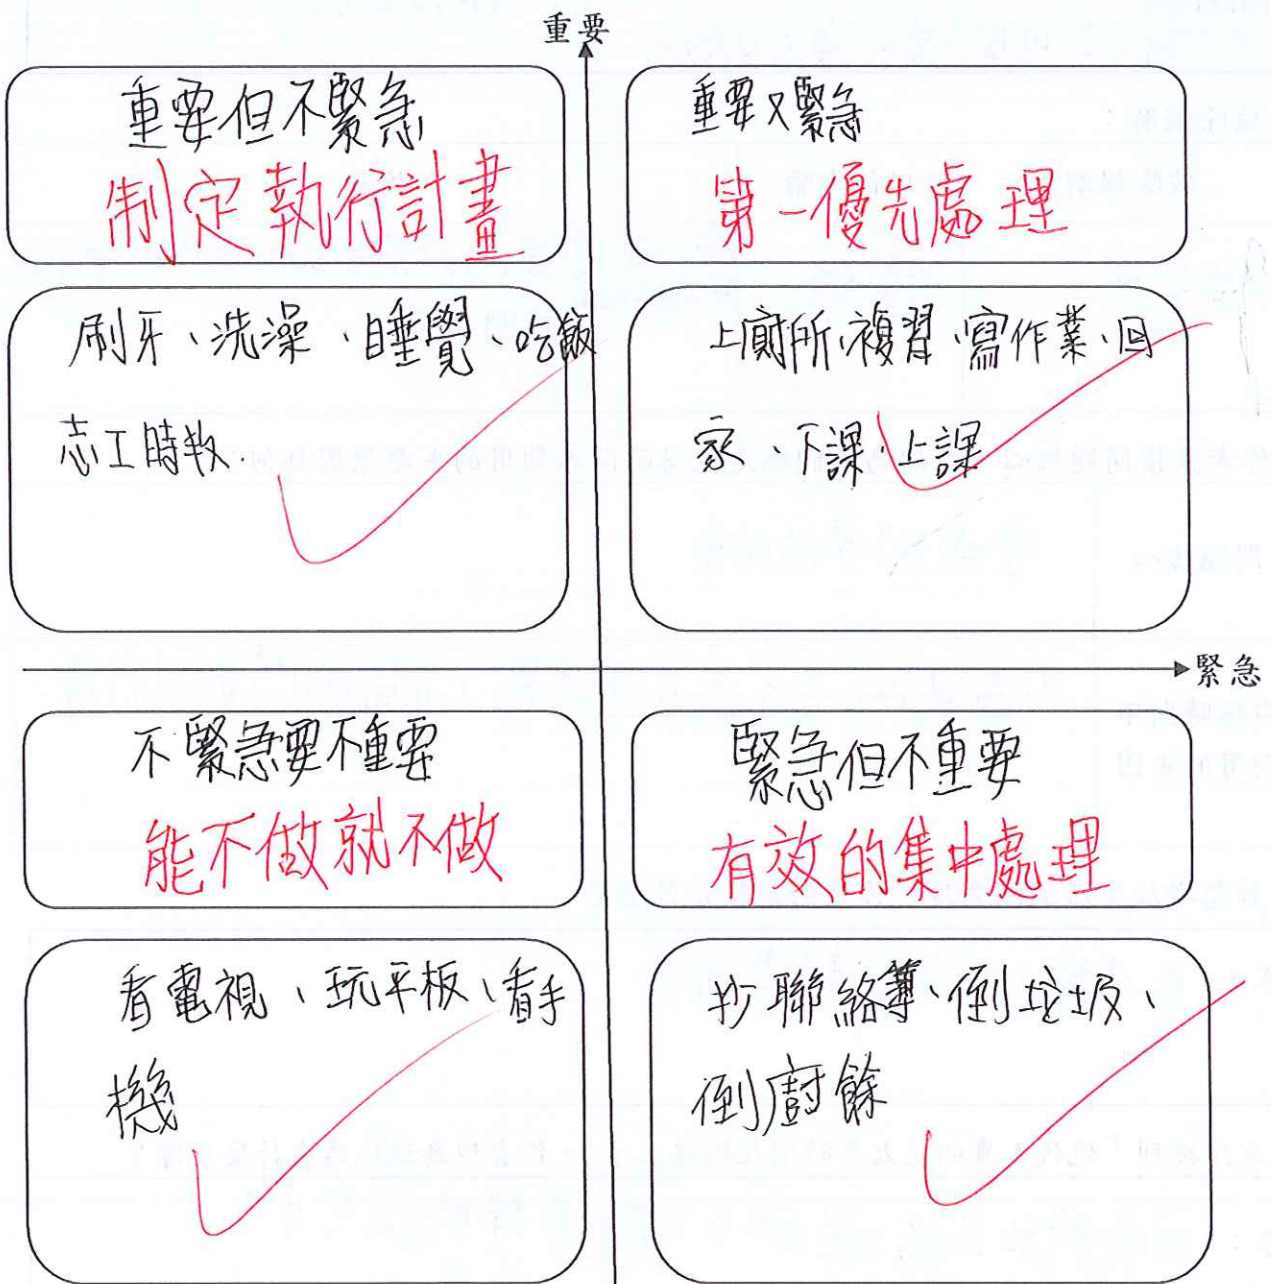 重要
重要但不緊急
制定執行計畫
重要又緊急
第一優先處理
刷牙、洗澡、睡覺、吃飯
志工時數
上廁所、複習、寫作業、回
家、下課、上課
緊急
不緊急要不重要
能不做就不做
緊急但不重要
有效的集中處理
看電視、玩平板、看手
機
抄聯絡簿、倒垃圾、
倒廚餘